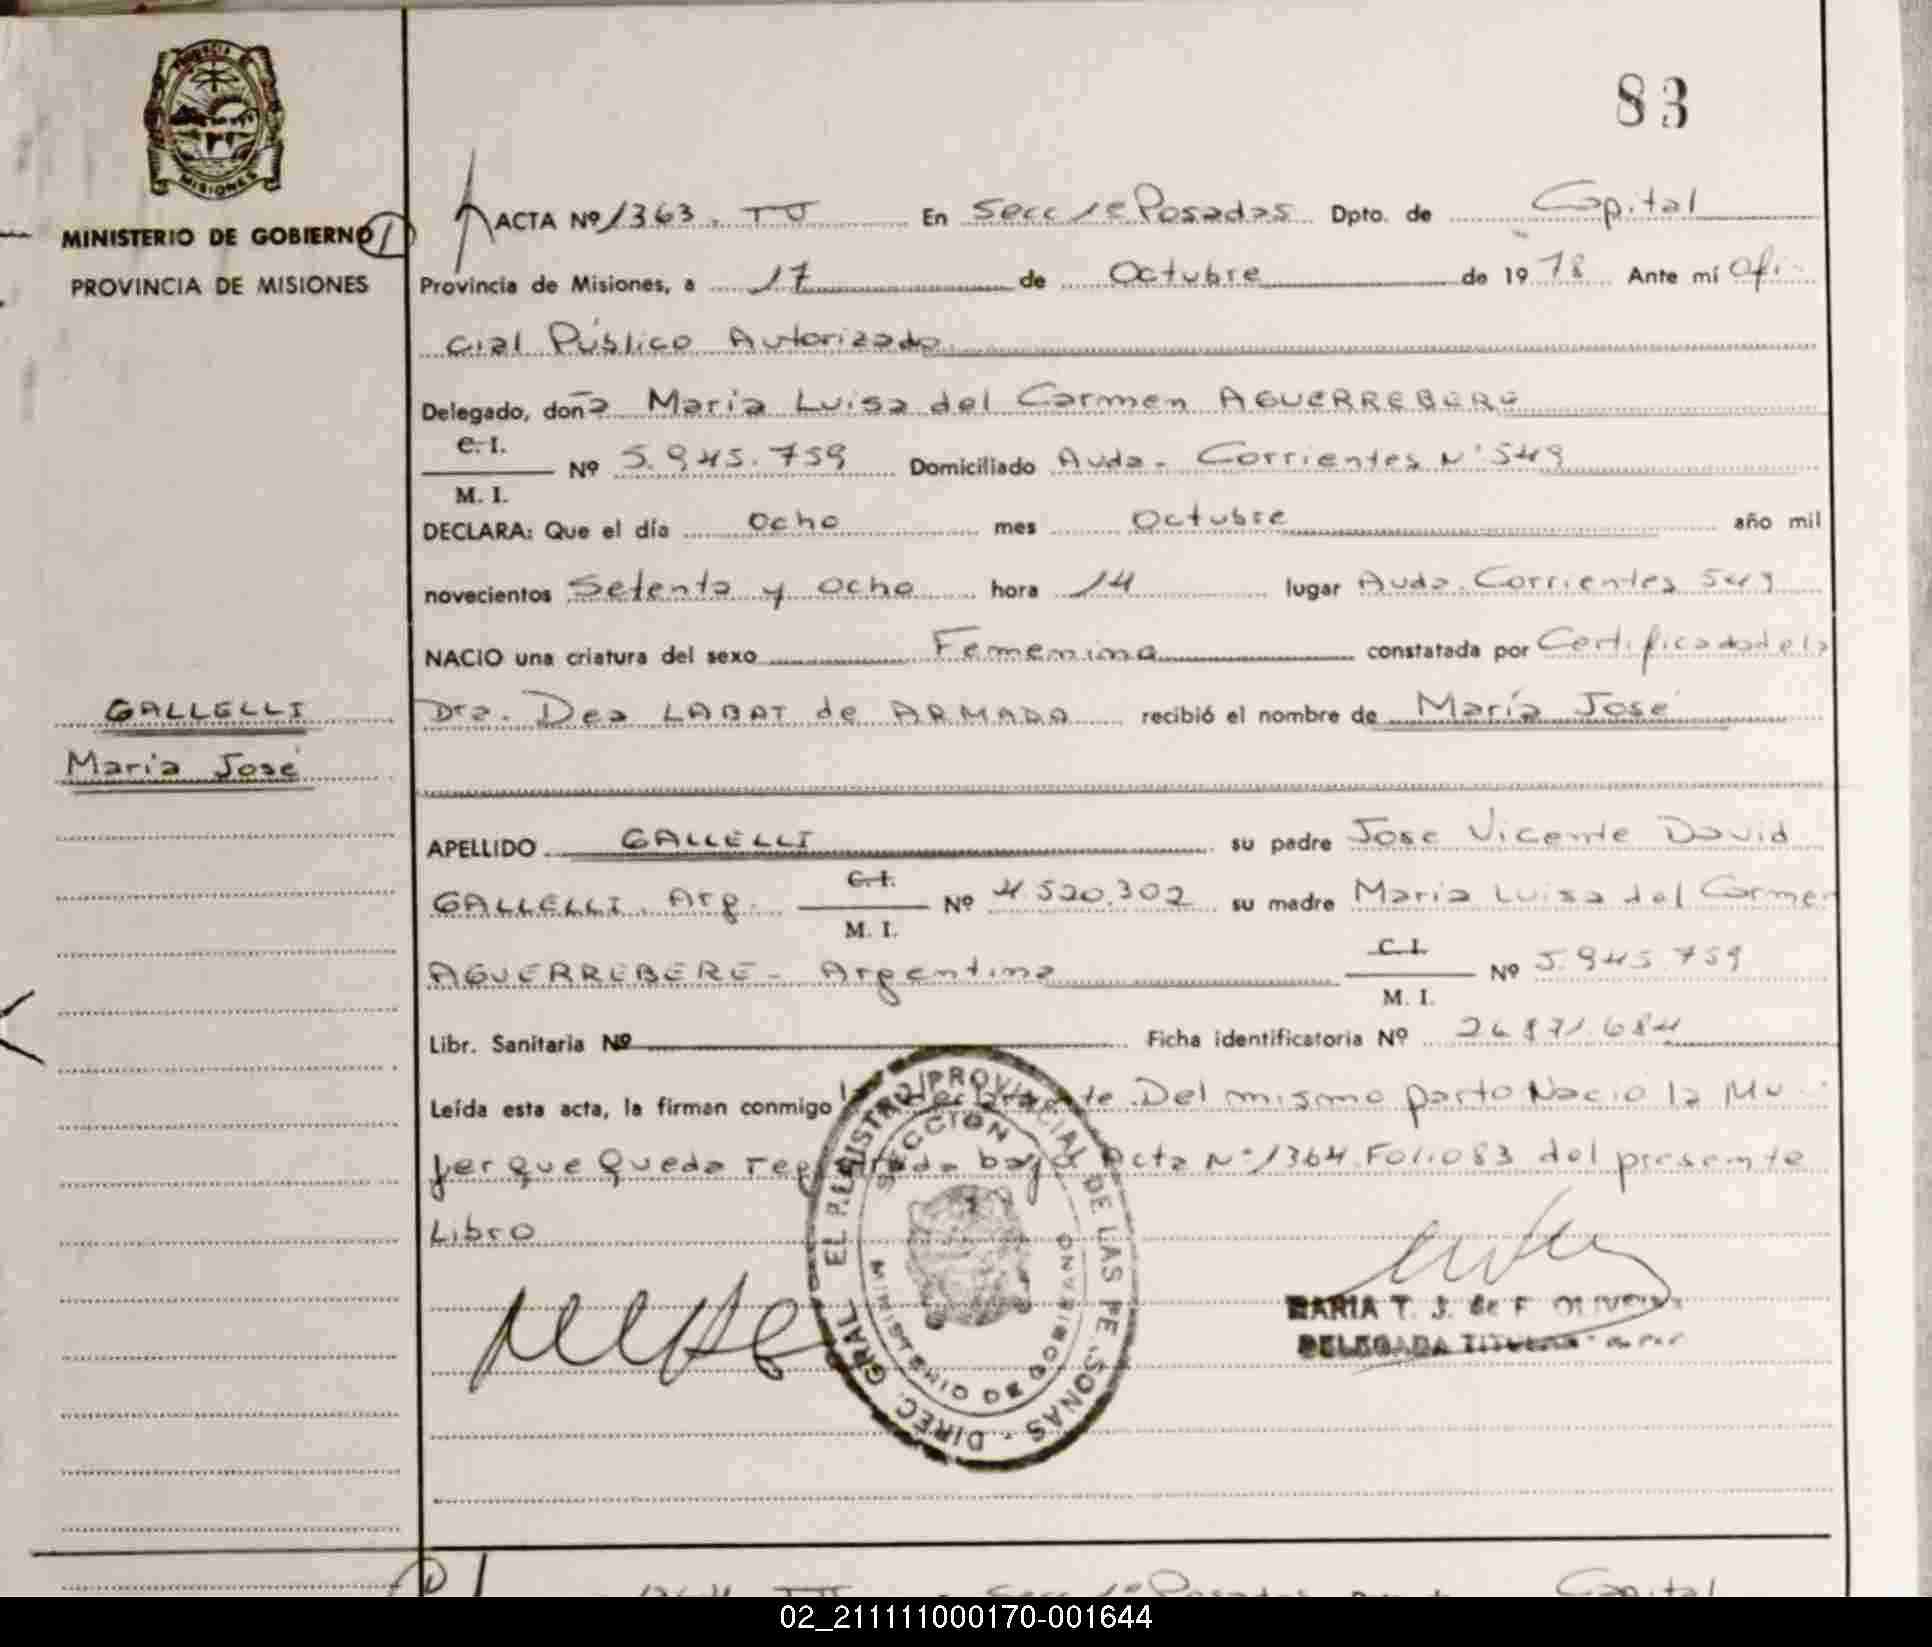 83
PROVINCIA DE
MISIONES
MINISTERIO DE GOBIERNO
PROVINCIA DE MISIONES
1
GALLELLI
María José
ACTA Nº 1363. TJ En Secc 1e Posadas Dpto. de Capital
Provincia de Misiones, a 17 de Octubre de 1978 Ante mí Ofi-
cial Público Autorizado
Delegado, doña María Luisa del Carmen AGUERREBERE
C. I.
Nº 5.945.759 Domiciliado Avda. Corrientes Nº 549
M. I.
DECLARA: Que el día ocho mes Octubre año mil
novecientos Setenta y ocho hora 14 lugar Avda. Corrientes 549
NACIO una criatura del sexo Femenina constatada por Certificado de la
Dra. Dea LABAT de ARMADA recibió el nombre de María José
APELLIDO GALLELLI su padre Jose Vicente David
C. I.
GALLELLI. Arg. Nº 4.520.302 su madre María Luisa del Carmen
M. I.
C. I.
AGUERREBERE - Argentina Nº 5.945.759
M. I.
Libr. Sanitaria Nº Ficha identificatoria Nº 26.871.684
Leída esta acta, la firman conmigo la declarante. Del mismo parto Nacio la Mu-
jer que Queda registrada bajo Acta Nº 1364 Folio 83 del presente
Libro
DIREC. GRAL EL REGISTRO PROVINCIAL DE LAS PERSONAS
SECCION
MINISTERIO DE GOBIERNO
MARIA T. J. de F. OLIVEIRA
DELEGADA TITULAR
1364 TJ Secc 1e Posadas Capital
02_211111000170-001644